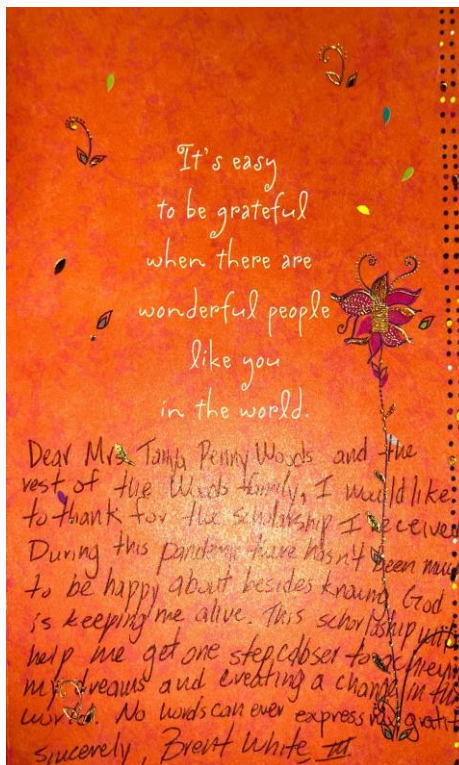 It's easy
to be grateful
when there are
wonderful people
like you
in the world.
Dear Mrs. Tamla Penny Woods and the
rest of the Woods family, I would like
to thank for the scholarship I received
During this pandemic there hasn't been muc
to be happy about besides knowing God
is keeping me alive. This scholarship will
help me get one step closer to achiev
my dreams and creating a change in the
world. No words can ever express my gratit
sincerely, Brent White III